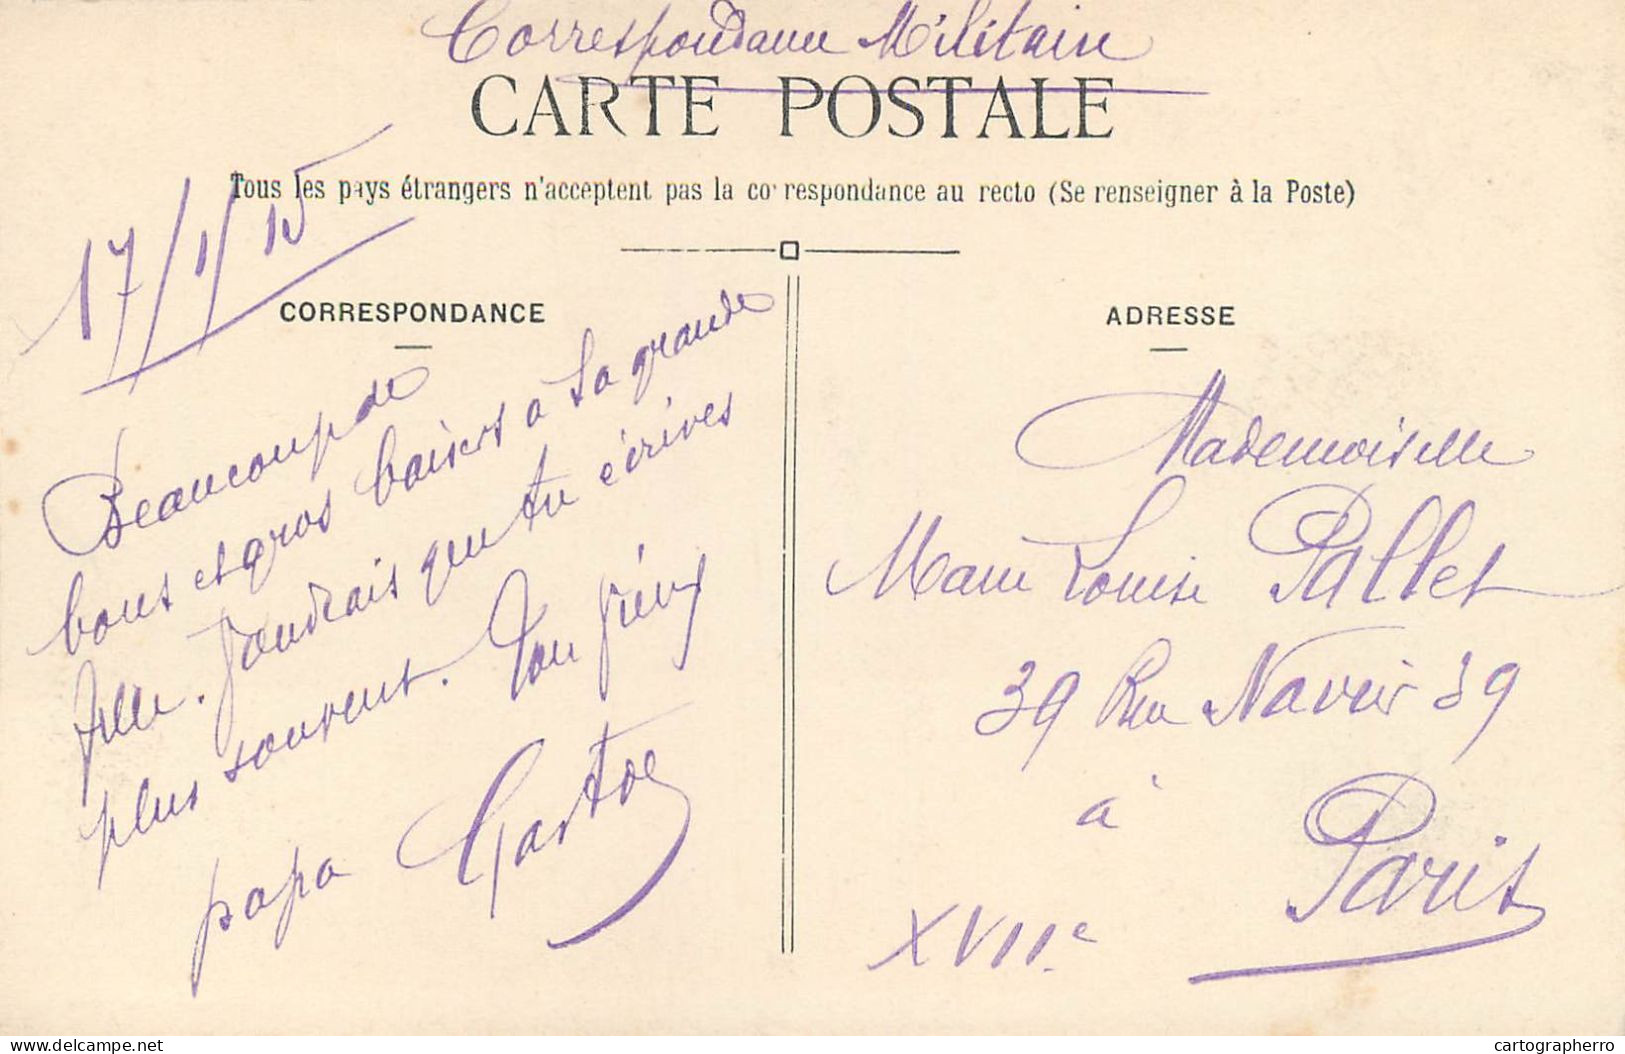 Correspondance Militaire
CARTE POSTALE
Tous les pays étrangers n'acceptent pas la correspondance au recto (Se renseigner à la Poste)
17/1/15
CORRESPONDANCE
Beaucoup de
bons et gros baisers a Sa grande
fille. Voudrais que tu écrives
plus souvent. Ton
papa
ADRESSE
Mademoiselle
Marie Louise Pallet
39 Rue Navier 39
à
Paris
XVIIe
delcampe.net
cartographerro